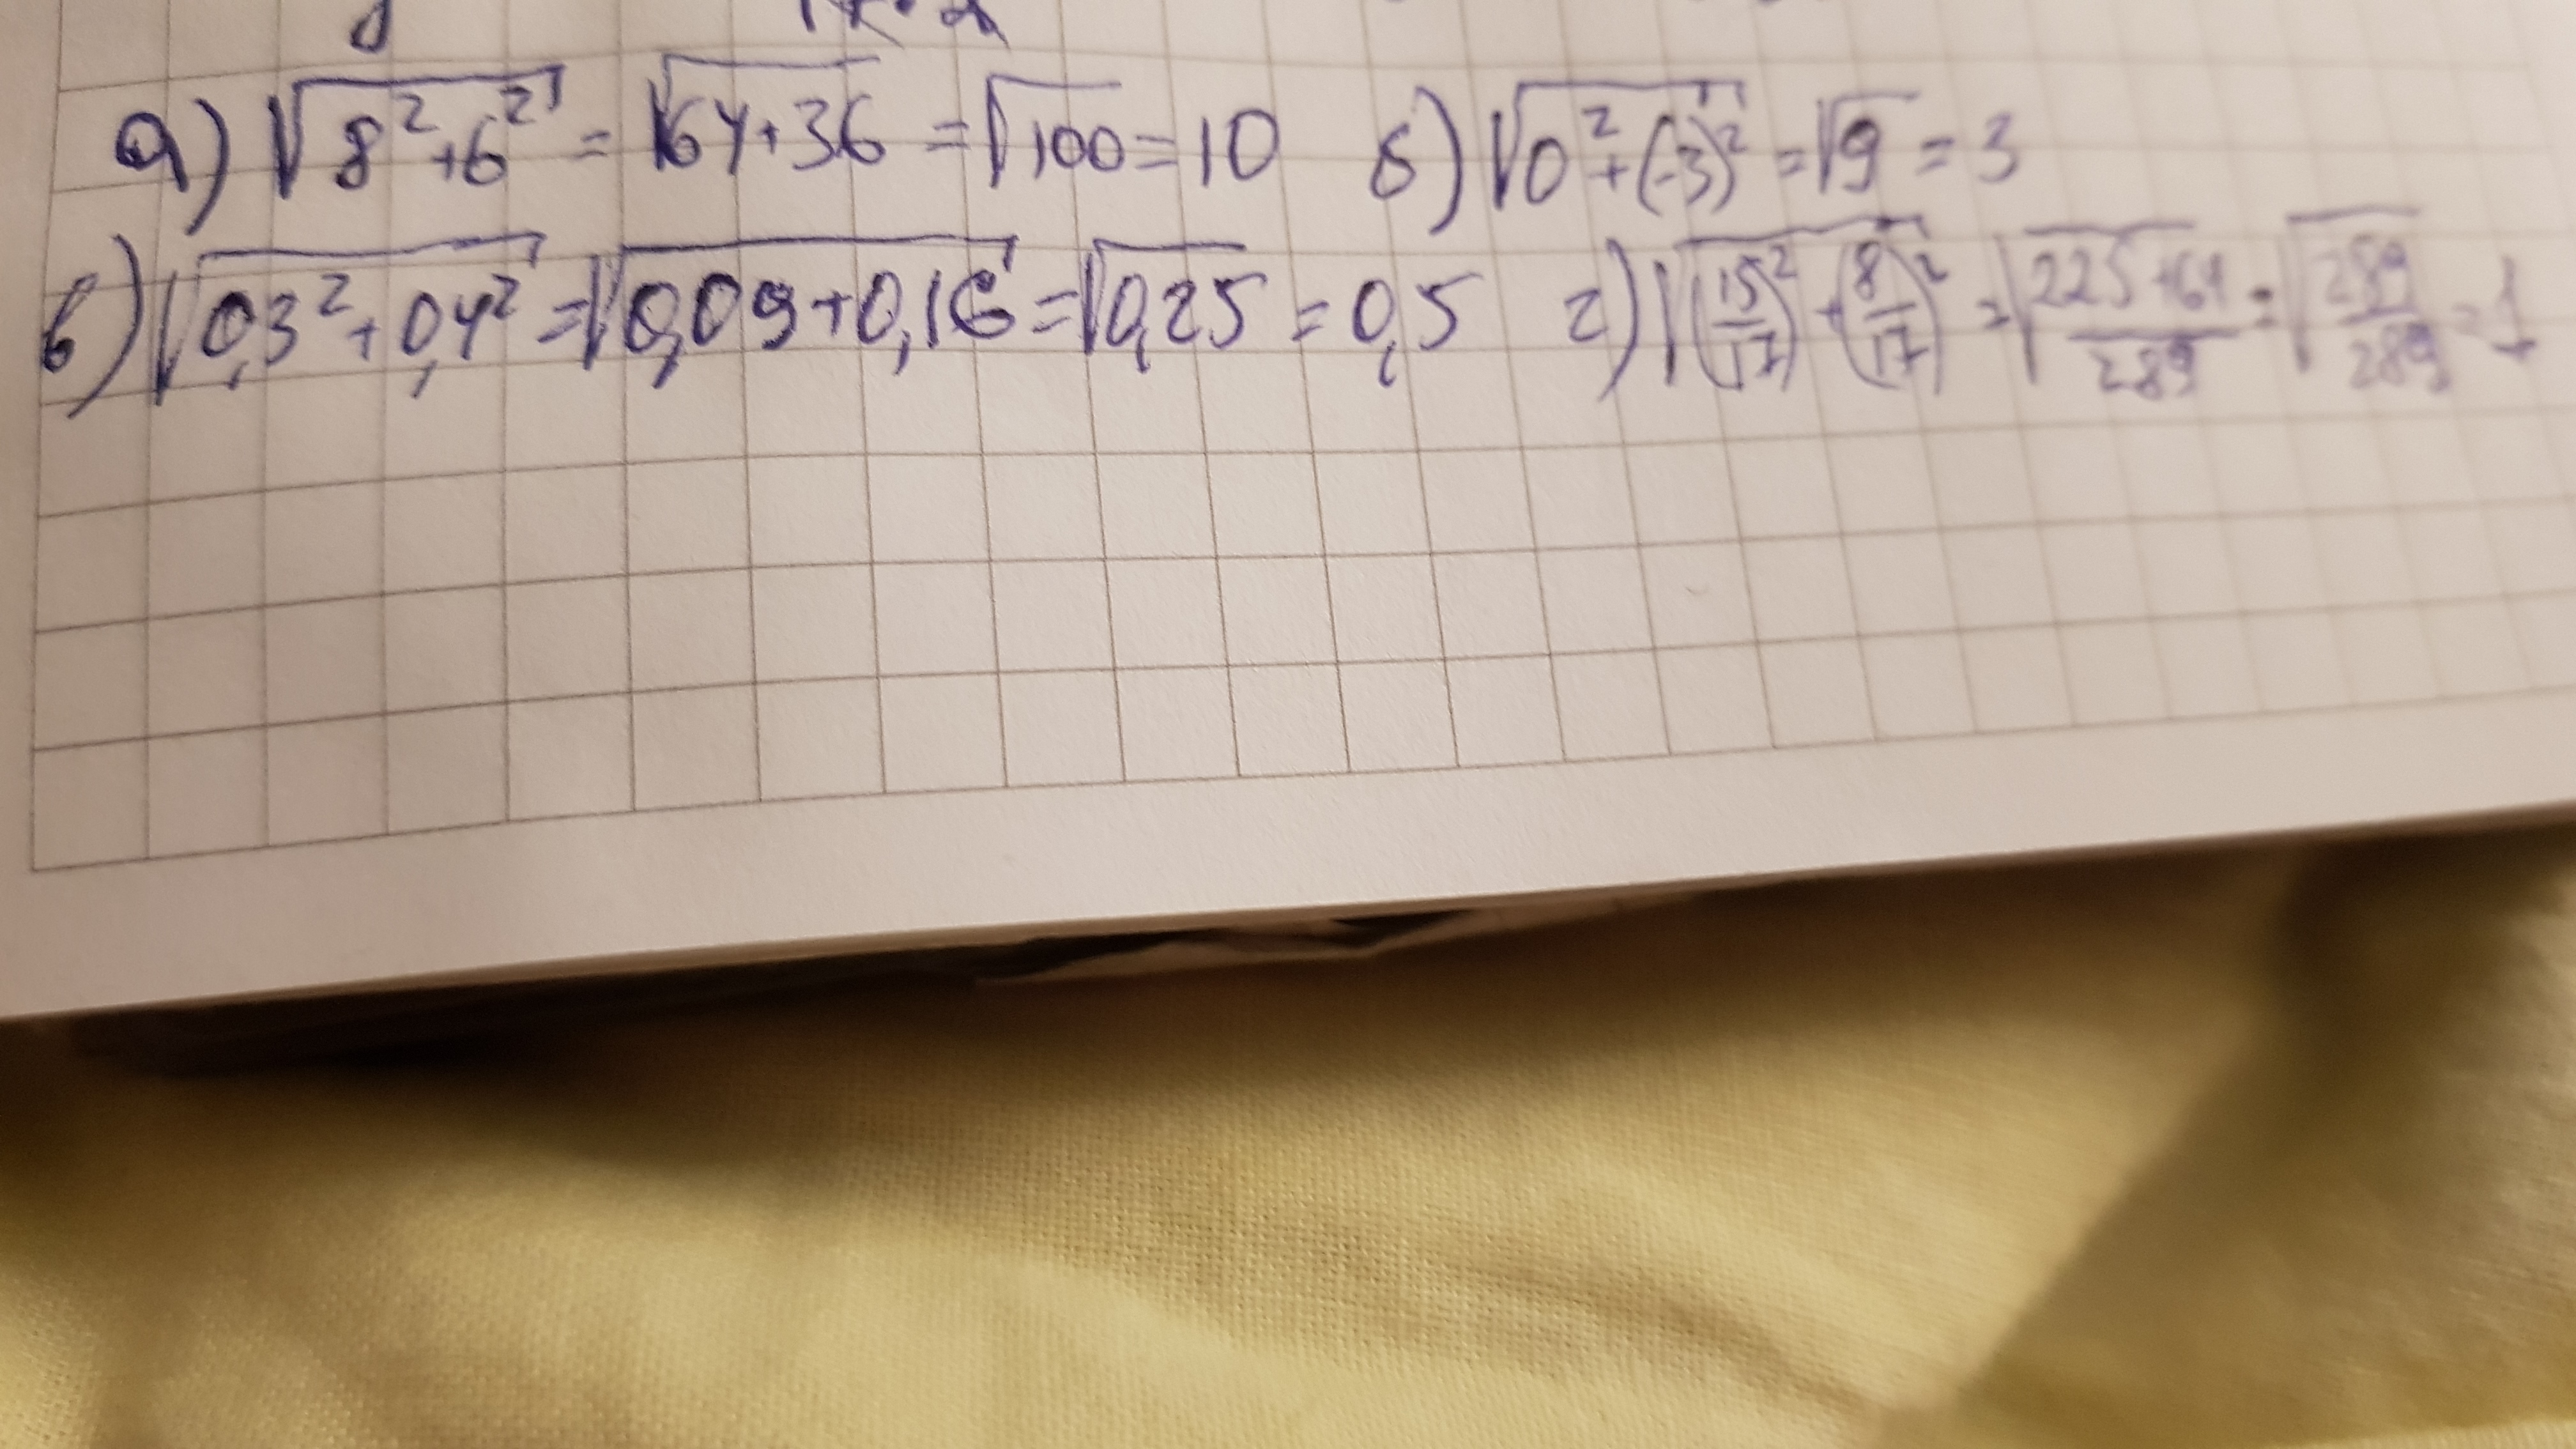 а) √(8²+6²) = √(64+36) = √100 = 10 б) √(0²+(-3)²) = √9 = 3
в) √(0,3²+0,4²) = √(0,09+0,16) = √0,25 = 0,5 г) √((15/17)²+(8/17)²) = √((225+64)/289) = √(289/289) = 1